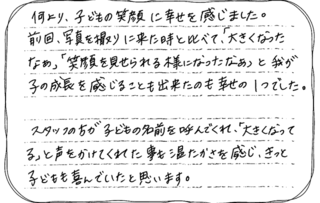 何より、子どもの笑顔に幸せを感じました。
前回、写真を撮りに来た時と比べて、「大きくなった
なぁ、「笑顔を見せられる様になったなぁ」と我が
子の成長を感じることも出来たのも幸せの1つでした。
スタッフの方が子どもの名前を呼んでくれ、「大きくなって
る」と声をかけてくれた事を温たかさを感じ、きっと
子どもも喜んでいたと思います。